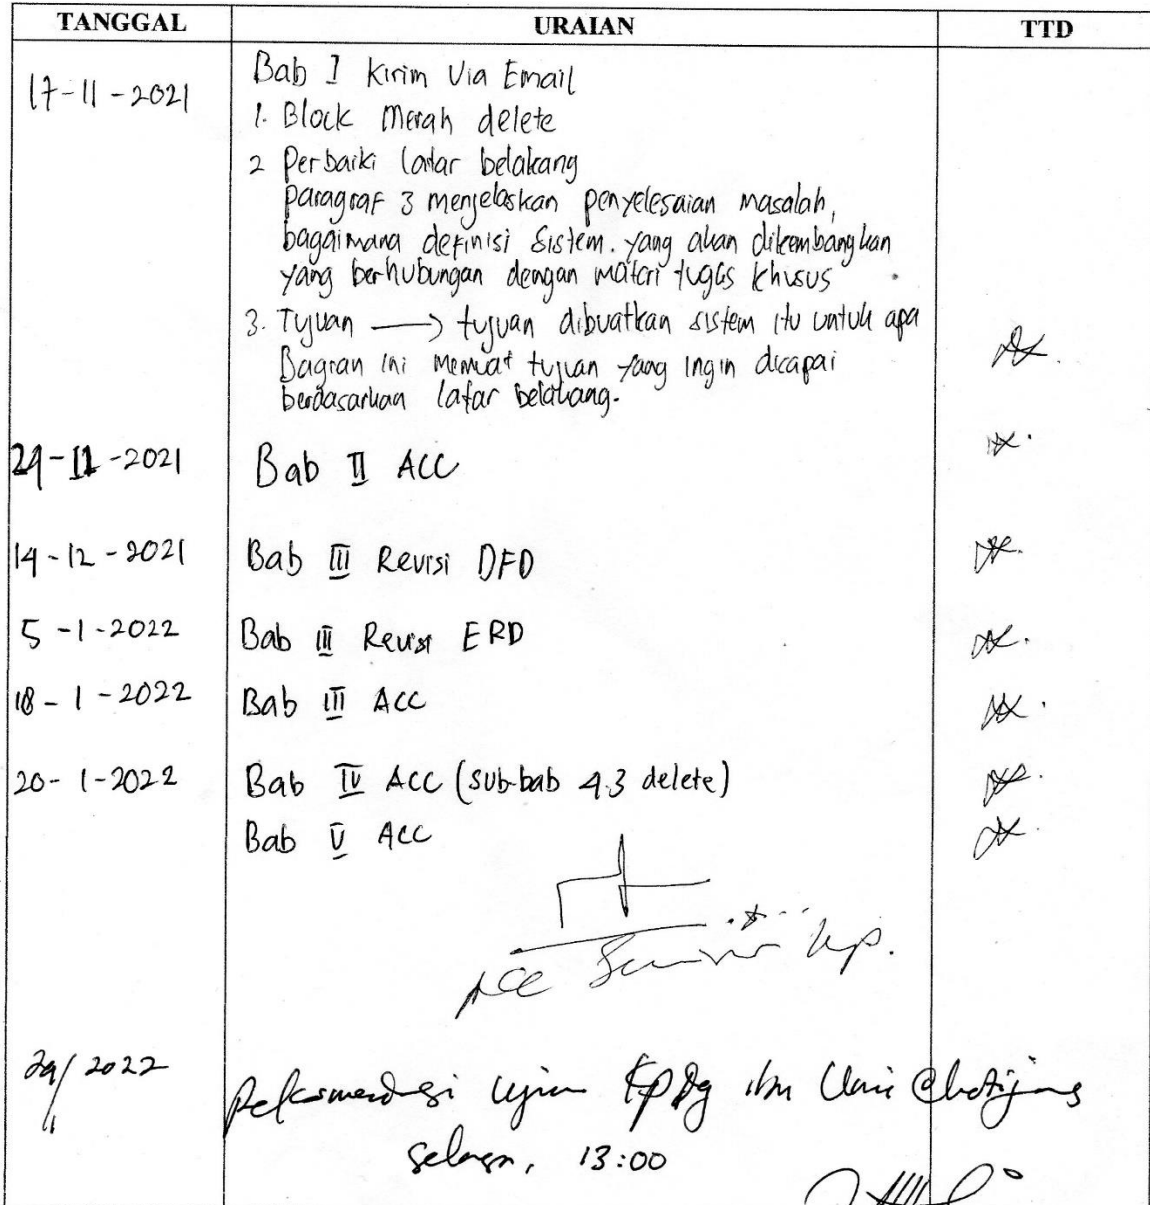 TANGGAL URAIAN TTD
17-11-2021 Bab I Kirim Via Email
1. Block Merah delete
2 Perbaiki latar belakang
paragraf 3 menjelaskan penyelesaian masalah,
bagaimana definisi sistem. yang akan dikembangkan
yang berhubungan dengan materi tugas khusus
3. Tujuan → tujuan dibuatkan sistem itu untuk apa
Bagian ini memuat tujuan yang ingin dicapai
berdasarkan latar belakang.
-11-2021 Bab II ACC
14-12-2021 Bab III Revisi DFD
5-1-2022 Bab III Revisi ERD
18-1-2022 Bab III ACC
20-1-2022 Bab IV ACC (sub-bab 4.3 delete)
Bab V ACC
ACC Seminar
29/11 2022 Rekomendasi ujian KP dg ibu
selasa, 13:00